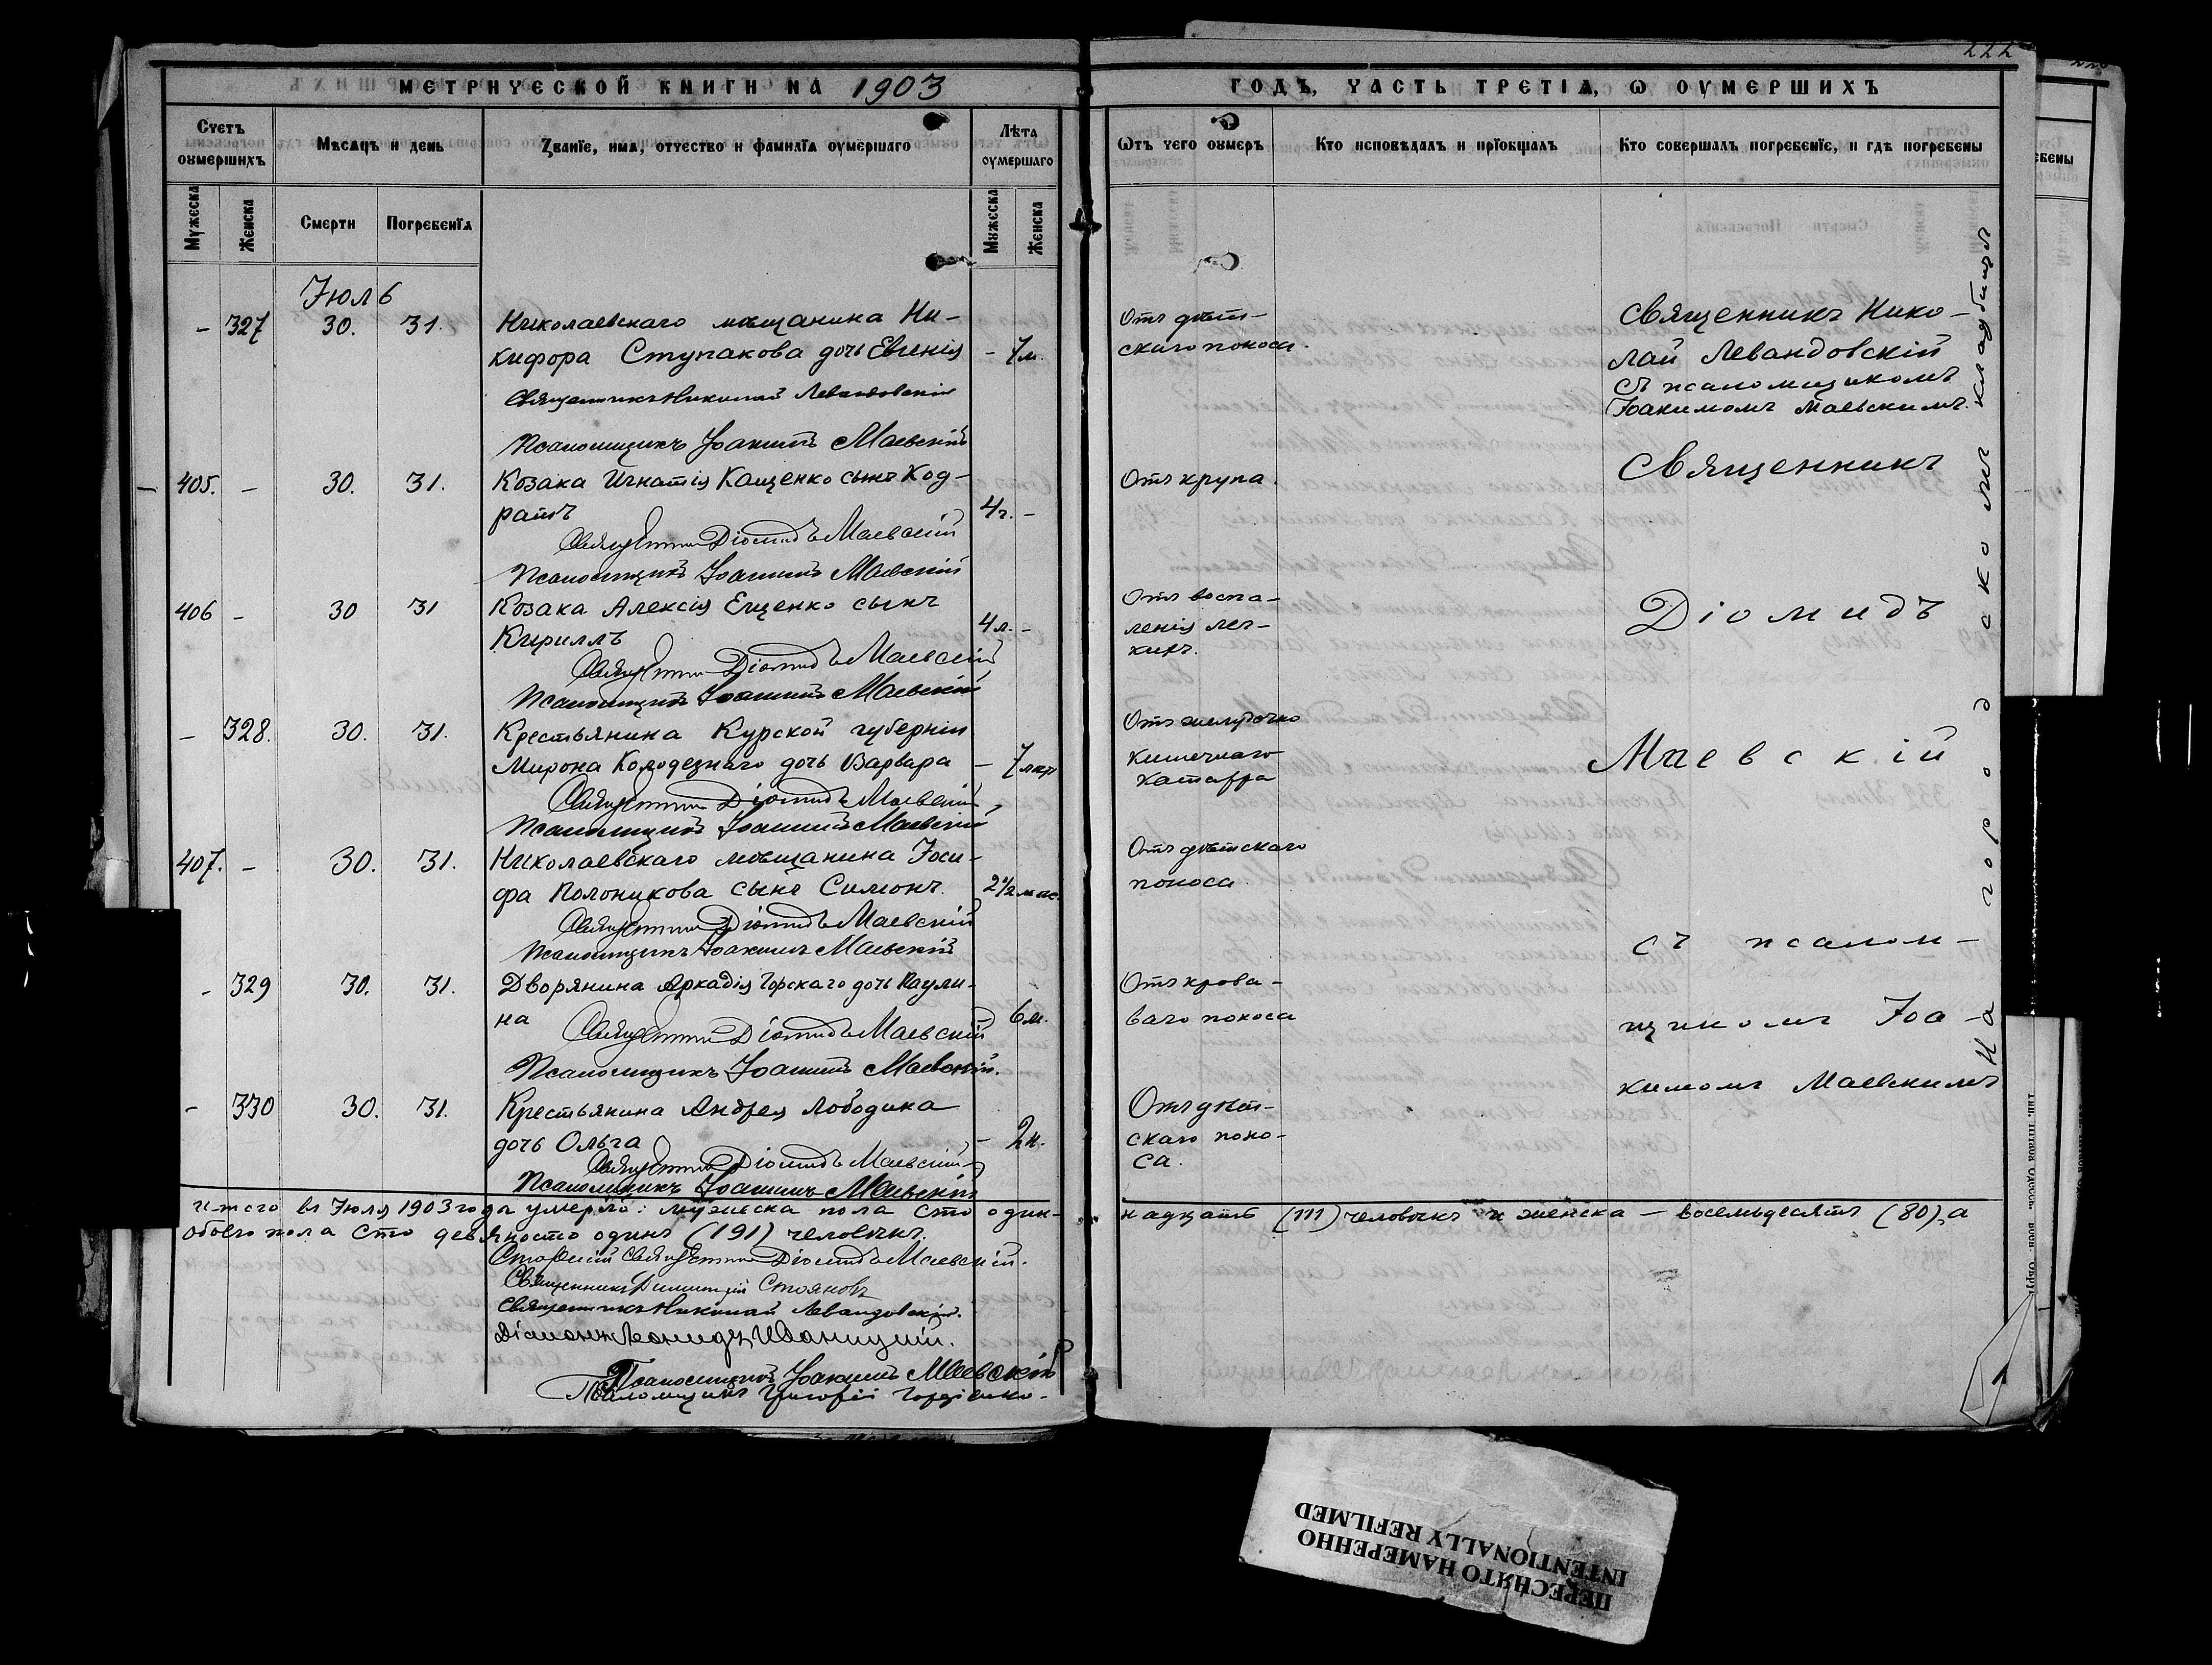 222
МЕТРИЧЕСКОЙ КНИГИ НА 1903
ГОДЪ, ЧАСТЬ ТРЕТІѦ, Ѡ ОУМЕРШИХЪ
Счетъ оумершихъ
Мѣсѧцъ и день
Званїе, имѧ, отчество и фамилїѧ оумершаго
Лѣта оумершаго
Ѿтъ чего оумеръ
Кто исповѣдалъ и прїобщалъ
Кто совершалъ погребенїе, и гдѣ погребены
Мужеска
Женска
Смерти
Погребенїѧ
Мужеска
Женска
Іюль
- 327 30. 31. Николаевскаго мѣщанина Ни-
кифора Ступакова дочь Евгенія - 7м.
Священникъ Николай Левандовскій
Псаломщикъ Іоакимъ Маевскій
Отъ дѣт-
скаго поноса.
Священникъ Нико-
лай Левандовскій
съ псаломщикомъ
Іоакимомъ Маевскимъ.
405. - 30. 31. Козака Игнатія Кащенко сынъ Код-
ратъ 4г. -
Священникъ Діомидъ Маевскій
Псаломщикъ Іоакимъ Маевскій
Отъ крупа.
406 - 30 31 Козака Алексія Ещенко сынъ
Кириллъ 4л. -
Священникъ Діомидъ Маевскій
Псаломщикъ Іоакимъ Маевскій
Отъ воспа-
ленія лег-
кихъ.
- 328. 30. 31. Крестьянина Курской губерніи
Мирона Колодезнаго дочь Варвара - 7
Священникъ Діомидъ Маевскій
Псаломщикъ Іоакимъ Маевскій
Отъ желудочно
кишечнаго
катарра
407. - 30. 31. Николаевскаго мѣщанина Іоси-
фа Полоникова сынъ Симонъ. 2 1/2 мѣс.
Священникъ Діомидъ Маевскій
Псаломщикъ Іоакимъ Маевскій
Отъ дѣтскаго
поноса.
- 329 30. 31. Дворянина Аркадія Горскаго дочь Паули-
на - 6м.
Священникъ Діомидъ Маевскій
Псаломщикъ Іоакимъ Маевскій.
Отъ крова-
ваго поноса
- 330 30. 31. Крестьянина Андрея Лободина
дочь Ольга - 2н.
Священникъ Діомидъ Маевскій
Псаломщикъ Іоакимъ Маевскій
Отъ дѣт-
скаго поно-
са.
Священникъ
Діомидъ
Маевскій
съ псалом-
щикомъ Іоа-
кимомъ Маевскимъ
На городскомъ кладбищѣ
Итого въ Іюлѣ 1903 года умерло: мужеска пола сто один-
надцать (111) человѣкъ и женска — восемьдесятъ (80), а
обоего пола сто девяносто одинъ (191) человѣкъ.
Священникъ Діомидъ Маевскій.
Священникъ Димитрій Стояновъ
Священникъ Николай Левандовскій.
Діаконъ Леонидъ Иваницкій.
Псаломщикъ Іоакимъ Маевскій
Псаломщикъ Григорій Гордіенко.
ПЕРЕСНЯТО НАМЕРЕННО
INTENTIONALLY REFILMED